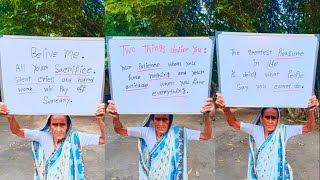 Belive Me.
All Your Sacrifice.
silent cries and hard
work will Pay off
Someday.
Two Things Define You:
Your Patience when you
have nothing and your
attitude when you have
everything.
The Greatest Pleasure
in life
Is doing what People
Say you cannot do.